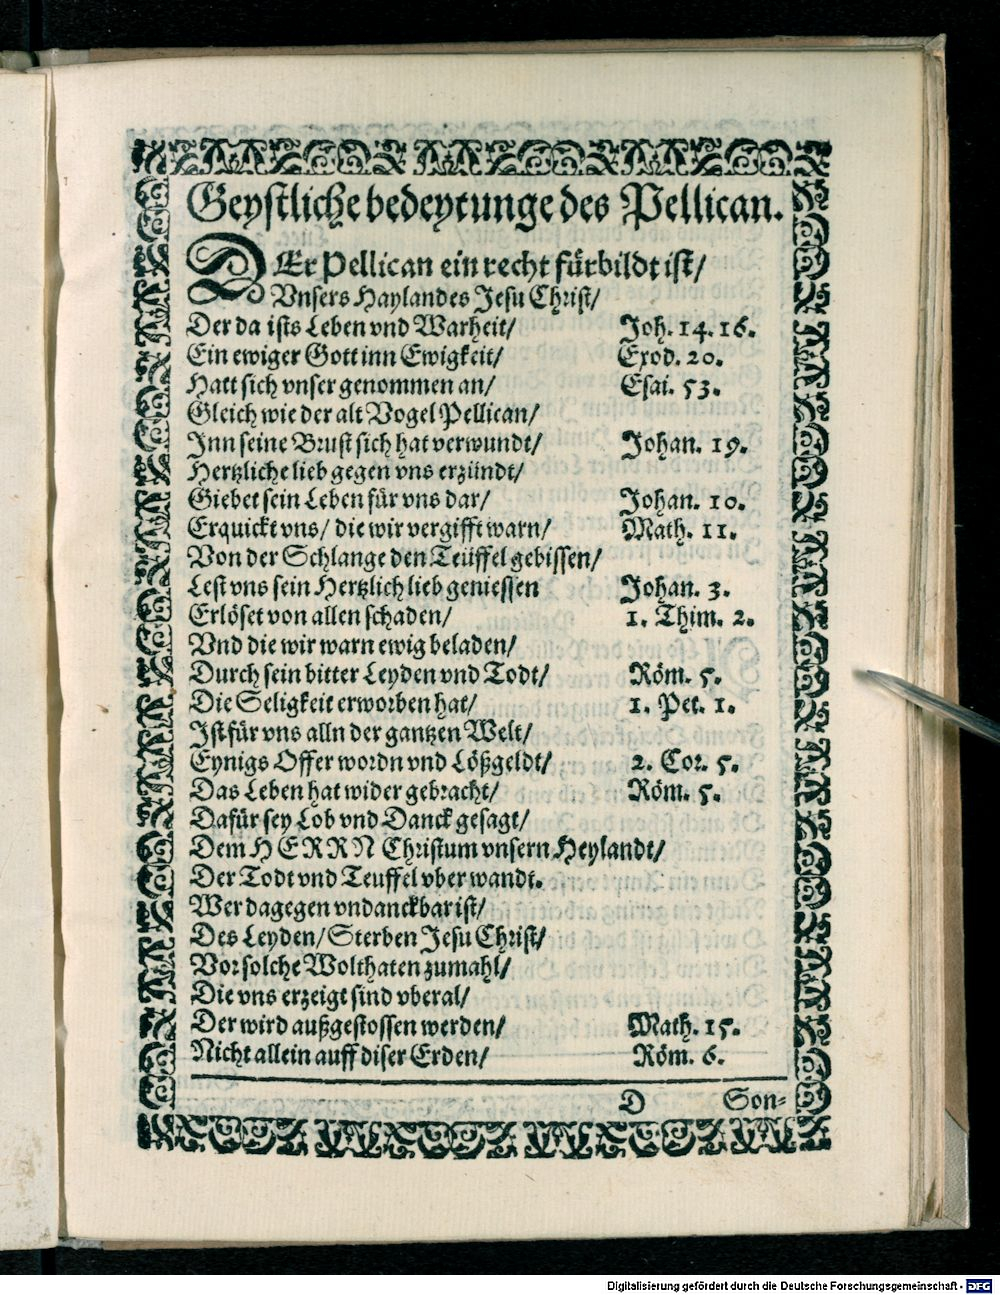 Geystliche bedeytunge des Pellican.
DEr Pellican ein recht fürbildt ist/
Vnsers Haylandes Jesu Christ/
Der da ists Leben vnd Warheit/ Joh. 14. 16.
Ein ewiger Gott inn Ewigkeit/ Exod. 20.
Hatt sich vnser genommen an/ Esai. 53.
Gleich wie der alt Vogel Pellican/
Inn seine Brust sich hat verwundt/ Johan. 19.
Hertzliche lieb gegen vns erzündt/
Giebet sein Leben für vns dar/ Johan. 10.
Erquickt vns/ die wir vergifft warn/ Math. 11.
Von der Schlange den Teüffel gebissen/
Lest vns sein Hertzlich lieb geniessen Johan. 3.
Erlöset von allen schaden/ 1. Thim. 2.
Vnd die wir warn ewig beladen/
Durch sein bitter Leyden vnd Todt/ Röm. 5.
Die Seligkeit erworben hat/ 1. Pet. 1.
Ist für vns alln der gantzen Welt/
Eynigs Offer wordn vnd Lößgeldt/ 2. Cor. 5.
Das Leben hat wider gebracht/ Röm. 5.
Dafür sey Lob vnd Danck gesagt/
Dem HERRN Christum vnsern Heylandt/
Der Todt vnd Teuffel vber wandt.
Wer dagegen vndanckbar ist/
Des Leyden/ Sterben Jesu Christ/
Vor solche Wolthaten zumahl/
Die vns erzeigt sind vberal/
Der wird außgestossen werden/ Math. 15.
Nicht allein auff diser Erden/ Röm. 6.
D Son-
Digitalisierung gefördert durch die Deutsche Forschungsgemeinschaft - DFG